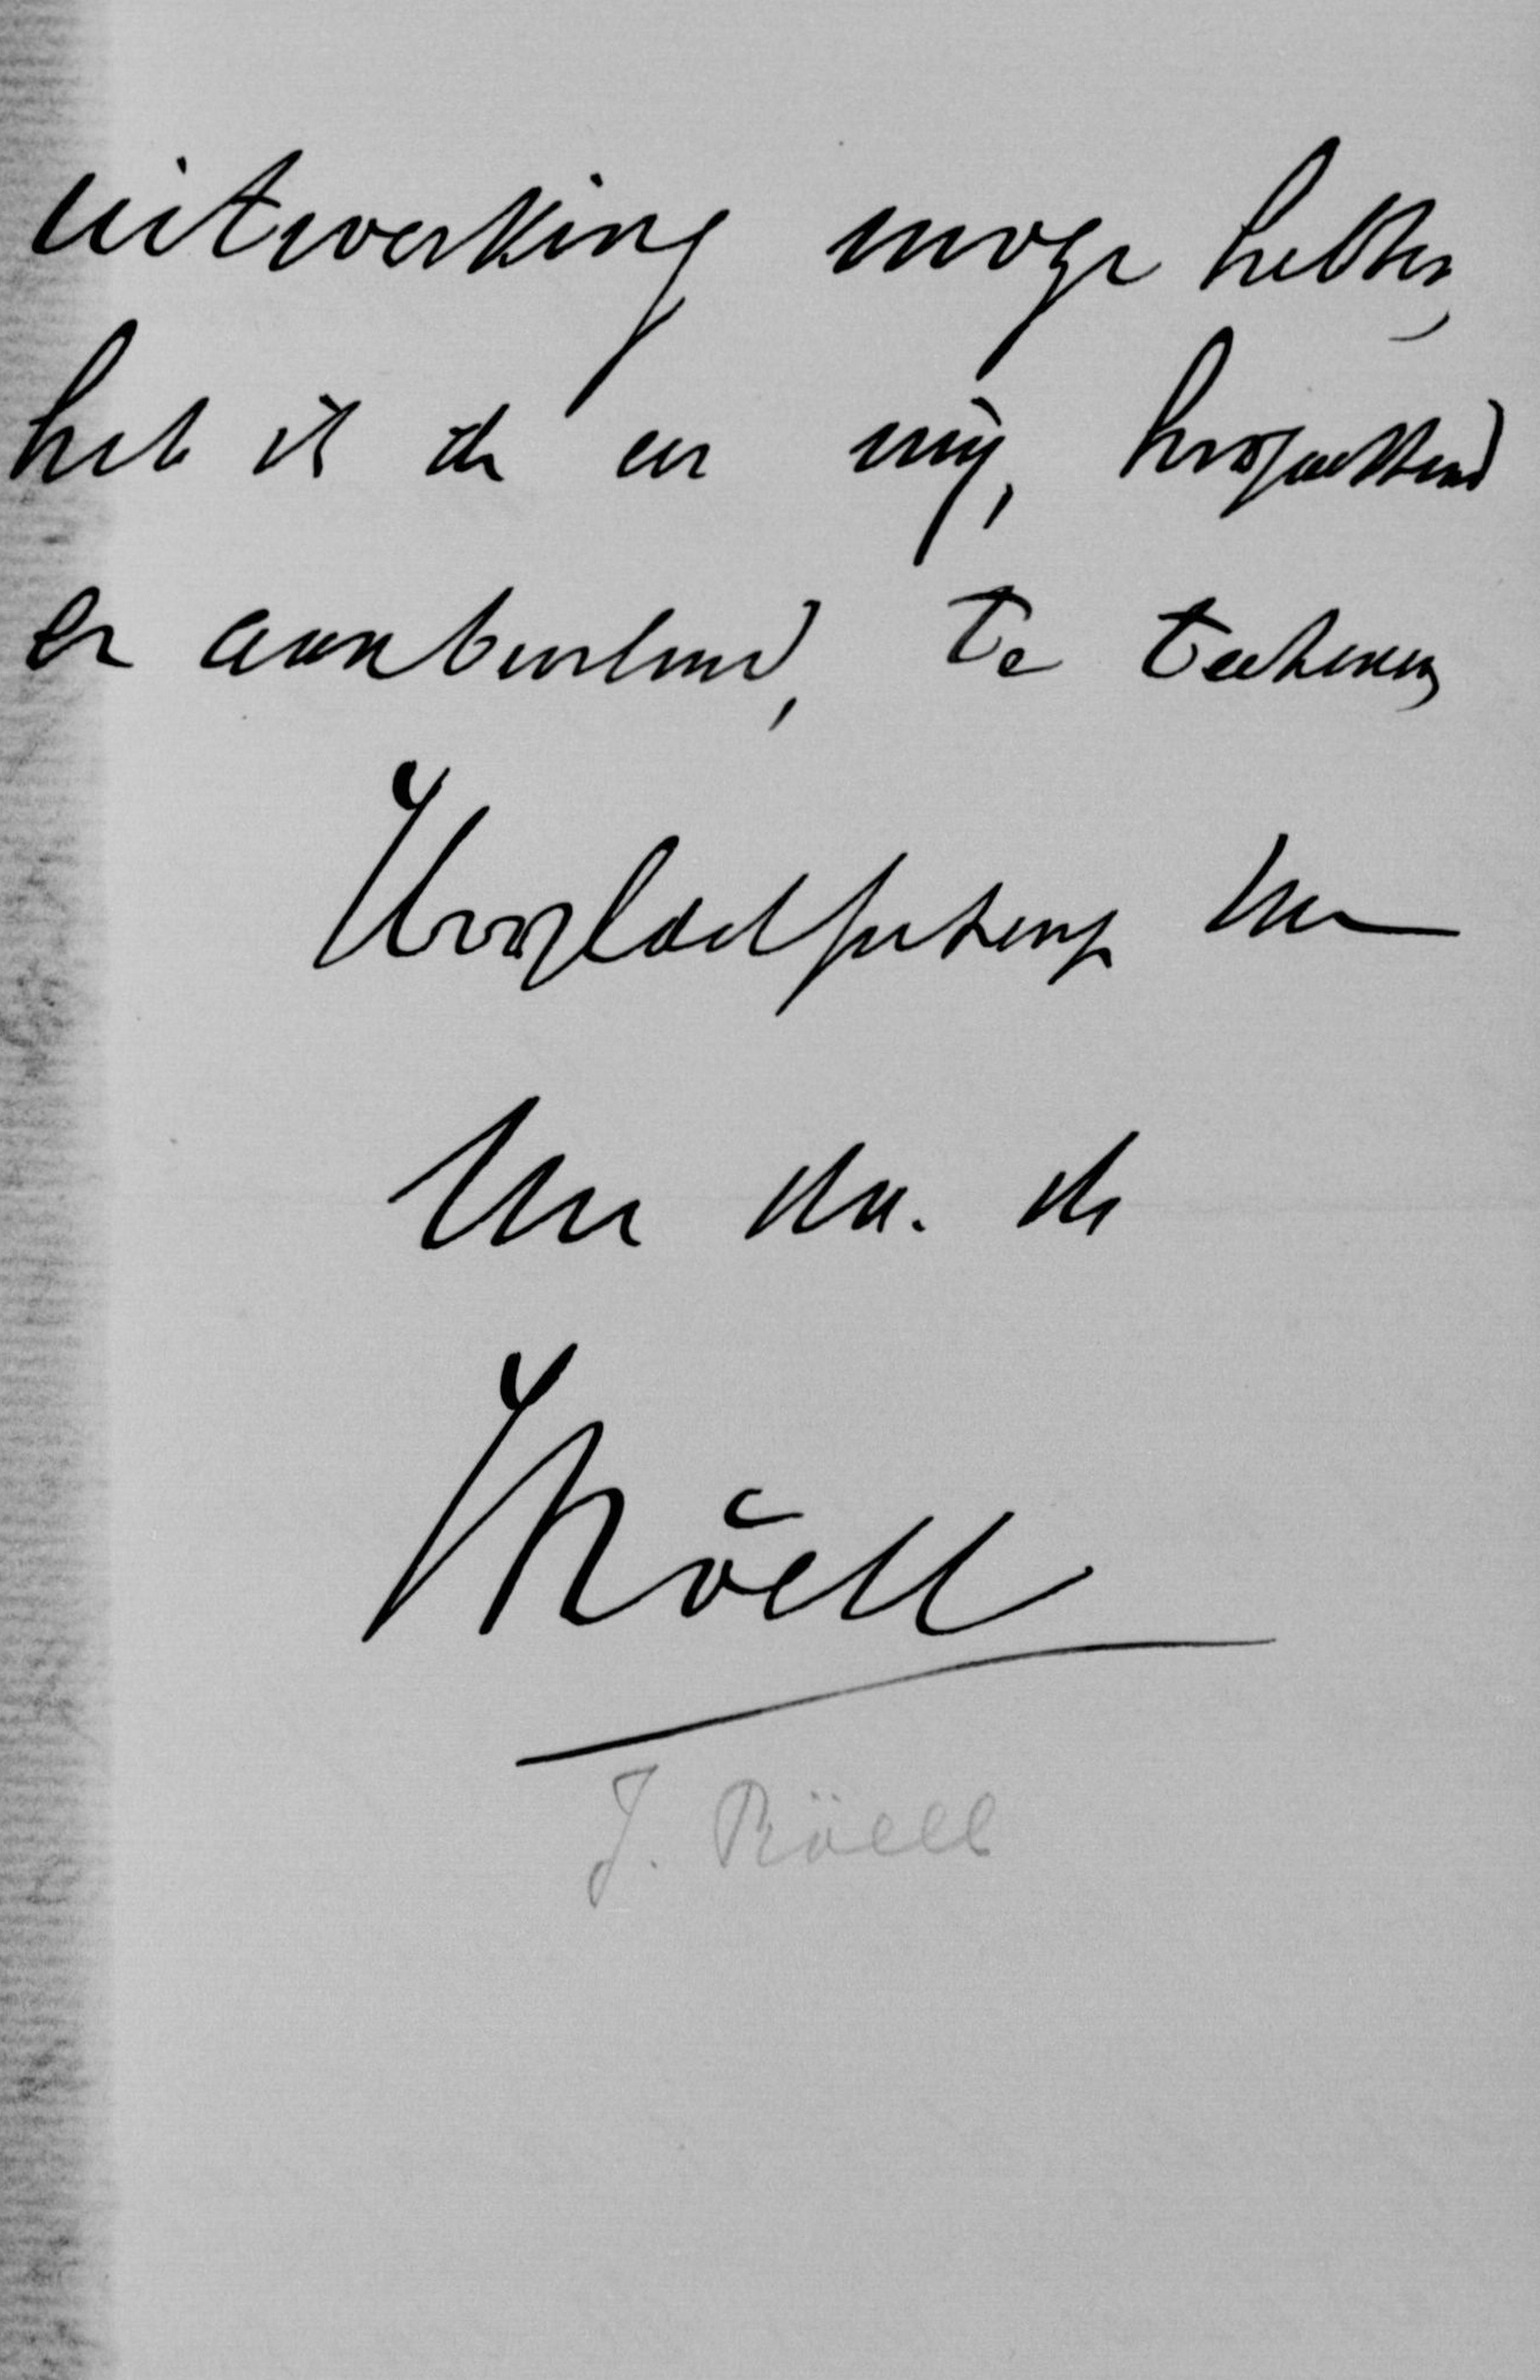 uitwerking moge hebben,
heb ik de eer mij, hoogachtend
en aanbevelend, te teekenen
Hoogedelgestrenge Heer
Uw dw. dr
JRöell
J. Röell